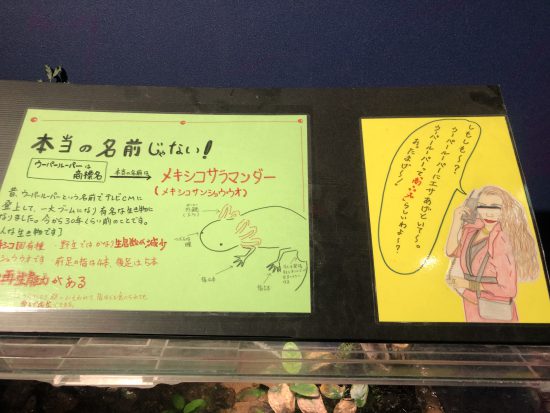 本当の名前じゃない!
ウーパールーパーは
商標名
本当の名前は
メキシコサラマンダー
(メキシコサンショウウオ)
昔、ウーパールーパーという名前でテレビCMに
登上して、一大ブームになり有名な生き物に
なりました。今から30年くらい前のことです。
んな生き物です】
シコ固有種・野生ではかなり生息数が減少
ショウウオです 前足の指は4本 後足は5本
再生能力がある
指4本
指5本
もしもし〜?
ウーパールーパーにエサあげといて〜。
ウーパールーパーって
らしいわよ〜?
おったまげ〜!